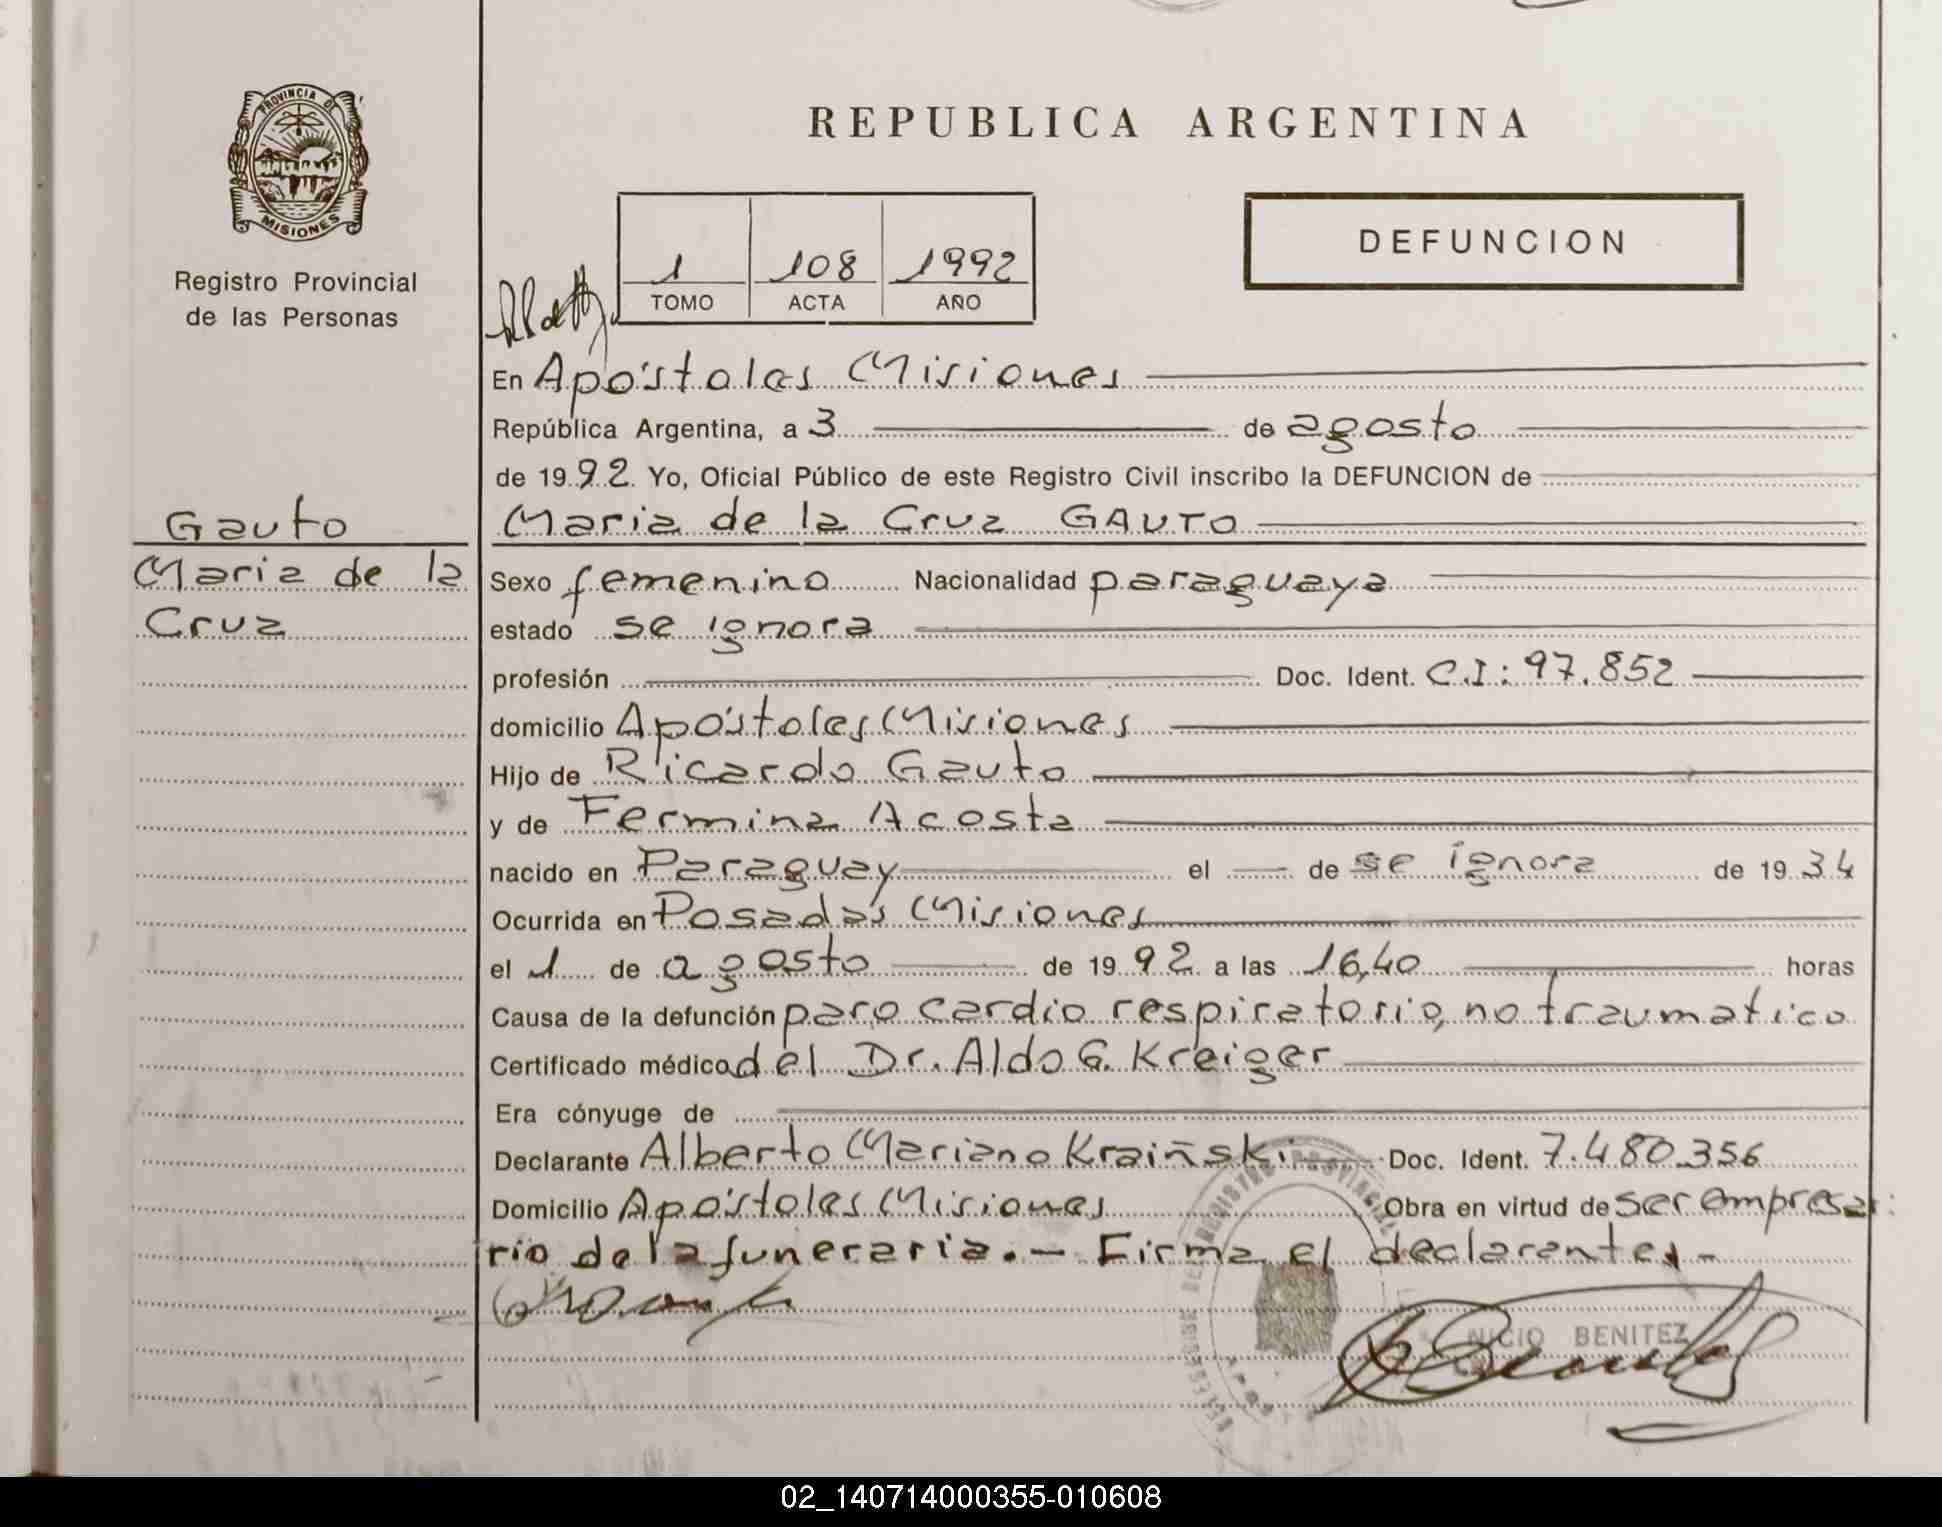 PROVINCIA DE
MISIONES
Registro Provincial
de las Personas
REPUBLICA ARGENTINA
DEFUNCION
1 108 1992
TOMO ACTA AÑO
En Apóstoles Misiones
República Argentina, a 3 de agosto
de 1992. Yo, Oficial Público de este Registro Civil inscribo la DEFUNCION de
Gauto
Maria de la
Cruz
Maria de la Cruz GAUTO
Sexo femenino Nacionalidad paraguaya
estado se ignora
profesión Doc. Ident. C.I: 97.852
domicilio Apóstoles Misiones
Hijo de Ricardo Gauto
y de Fermina Acosta
nacido en Paraguay el — de se ignora de 1934
Ocurrida en Posadas Misiones
el 1 de agosto de 1992 a las 16,40 horas
Causa de la defunción paro cardio respiratorio, no traumatico
Certificado médico del Dr. Aldo G. Kreiger
Era cónyuge de
Declarante Alberto Mariano Kraiñski Doc. Ident. 7.480.356
Domicilio Apóstoles Misiones Obra en virtud de ser empresa
rio de la funeraria.— Firma el declarante.-
NICIO BENITEZ
02_140714000355-010608